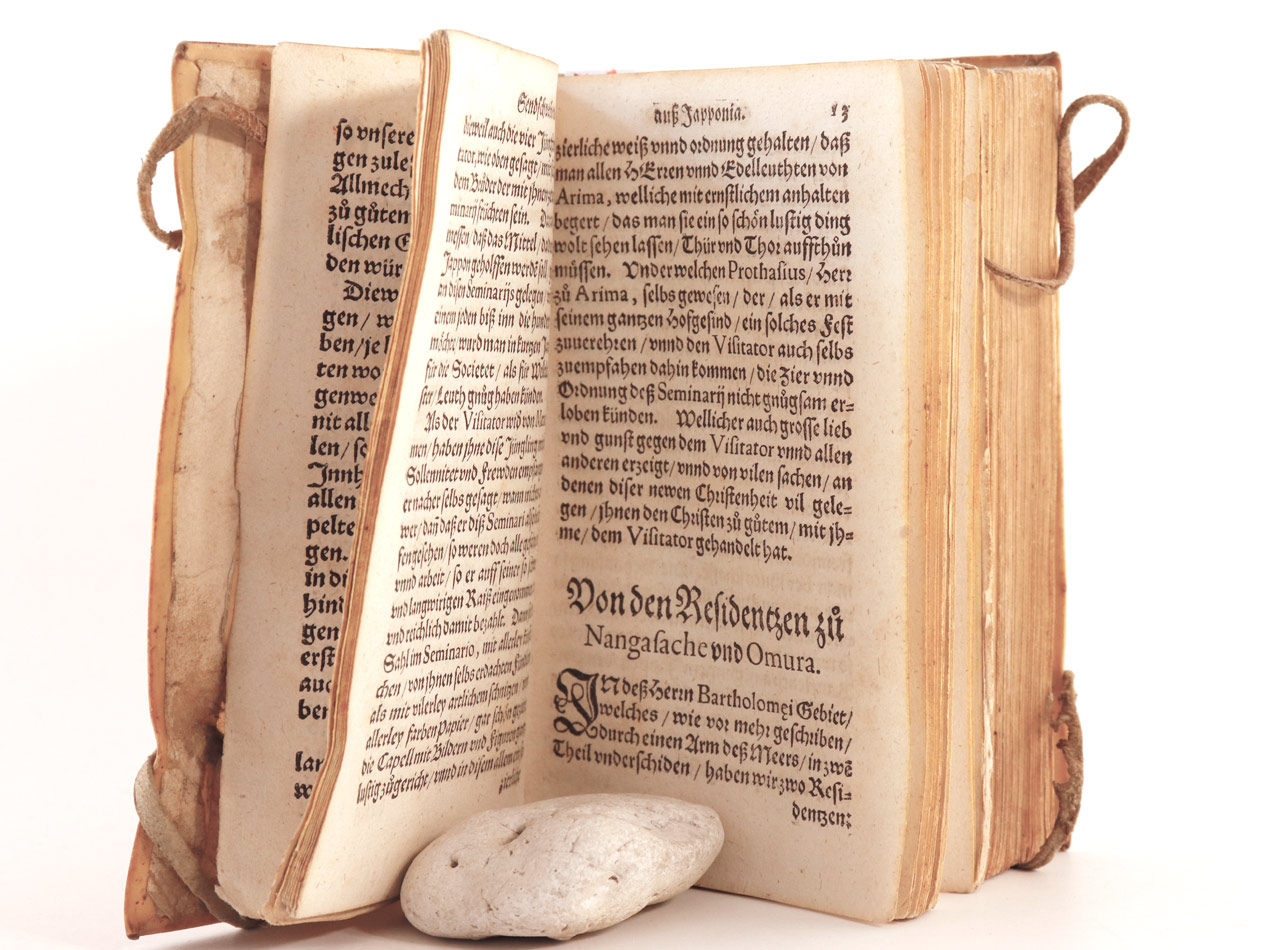 so vnsere
gen zule
Allmech
zů gůten
lischen
den wür
Diew
gen / w
ben / je
ten wo
genwe
nit all
len / so
Jnnh
allen
pelte
gen.
in di
hind
gen
erst
auc
ben
lan
Sendsch
dieweil auch die vier
tator, wie oben gesagt /
dem Brůder der mit jhnen
minarij
messen / daß das Mittel /
Jappon geholffen werdē soll
an disen Seminarijs gelegen /
einem jeden biß inn die
möchte / wurd man in kurtzen
für die Societet / als für
Leuth gnůg haben künden.
Als der Visitator wid von
men / haben jhne dise Jüngling
Sollennitet vnd Frewden empfang
er nacher selbs gesagt / wann nichts
wer / dañ daß er diß Seminari
fengesehen / so weren doch alle
vnnd arbeit / so er auff seiner
vnd langwirigen Raiß eingenommen
vnd reichlich damit bezahlt.
Sahl im Seminario, mit allerley
chen / von jhnen selbs erdachten
als mit vilerley artlichem schnitzen /
allerley farben Papier / gar schön
die Capell mit Bildern vnd Figuren
lustig zůgericht / vnnd in disem allem ein
zierliche
auß Japponia. 13
zierliche weiß vnnd ordnung gehalten / daß
man allen HErren vnnd Edelleuthten von
Arima, welliche mit ernstlichem anhalten
begert / das man sie ein so schön lustig ding
wolt sehen lassen / Thür vnd Thor auffthůn
müssen. Vnder welchen Prothasius / Herr
zů Arima, selbs gewesen / der / als er mit
seinem gantzen Hofgesind / ein solches Fest
zuuerehren / vnnd den Visitator auch selbs
zuempfahen dahin kommen / die Zier vnnd
Ordnung deß Seminarij nicht gnůgsam er=
loben künden. Wellicher auch grosse lieb
vnd gunst gegen dem Visitator vnnd allen
anderen erzeigt / vnnd von vilen sachen / an
denen diser newen Christenheit vil gele=
gen / jhnen den Christen zů gůtem / mit jh=
me / dem Visitator gehandelt hat.
Von den Residentzen zů
Nangasache vnd Omura.
JN deß Herrn Bartholomęi Gebiet /
welches / wie vor mehr geschriben /
durch einen Arm deß Meers / in zwē
Theil vnderschiden / haben wir zwo Resi=
dentzen: